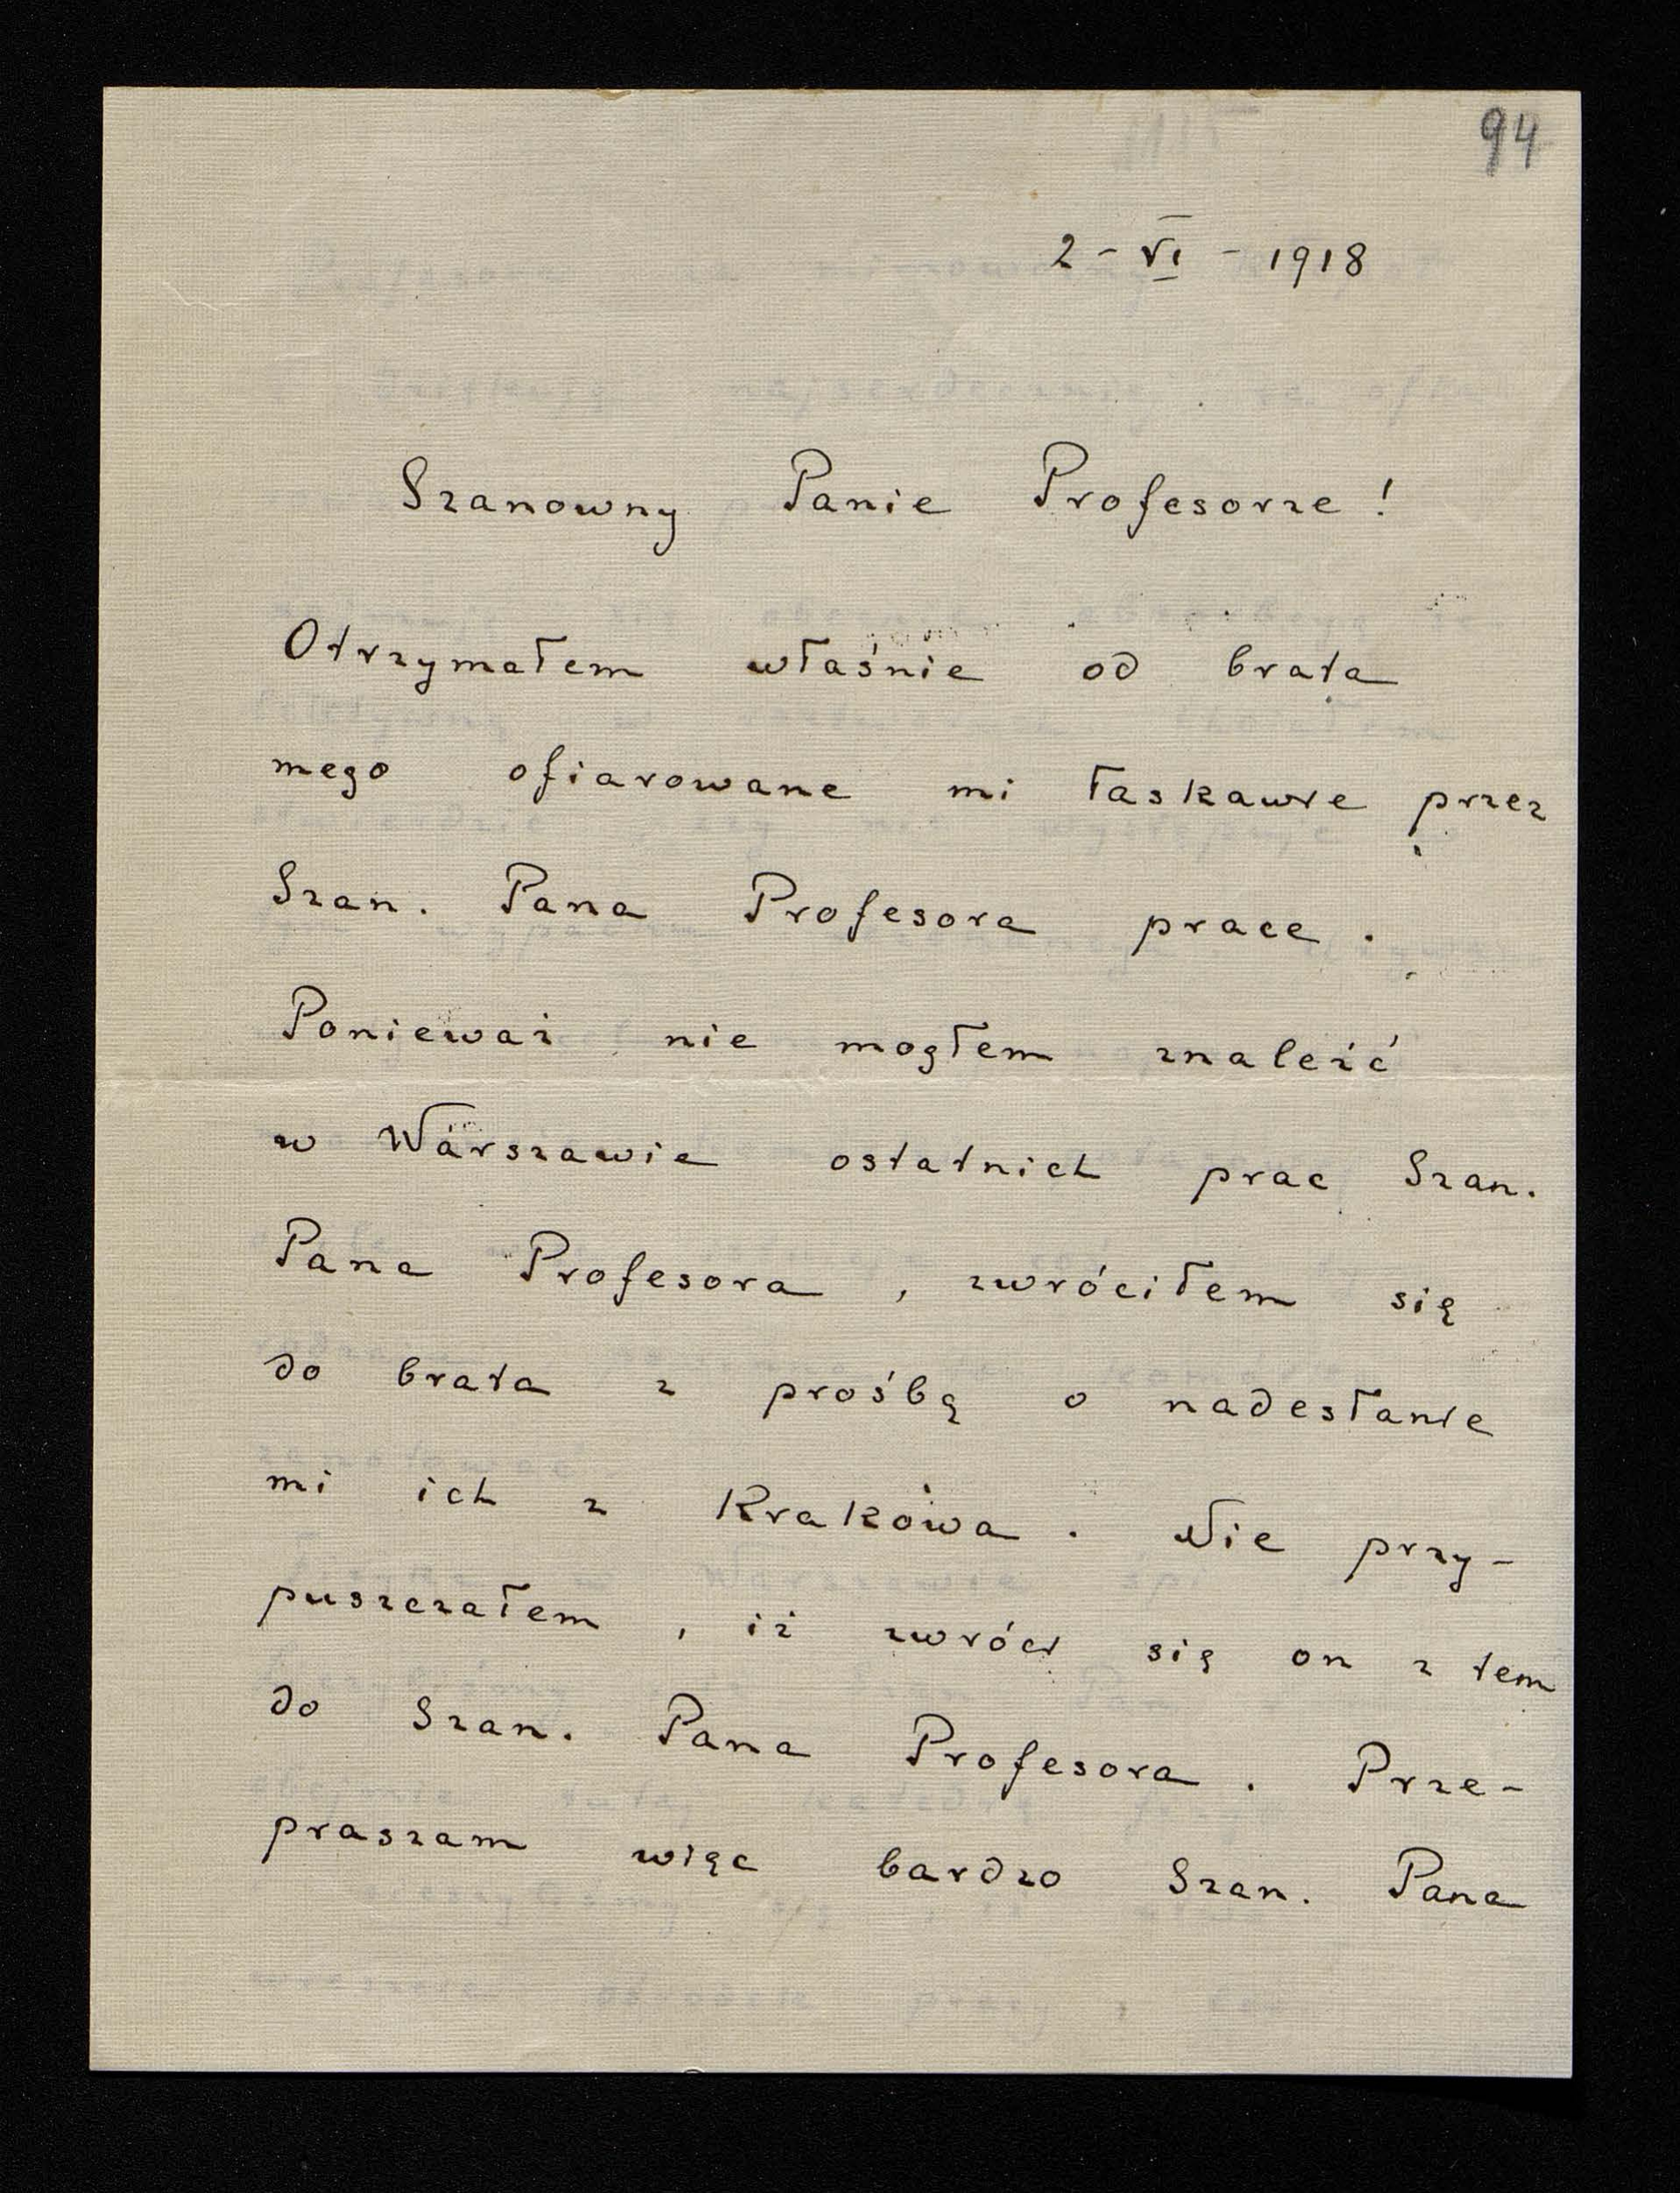 94
2 - VI - 1918
Szanowny Panie Profesorze!
Otrzymałem właśnie od brata
mego ofiarowane mi łaskawie przez
Szan. Pana Profesora prace.
Ponieważ nie mogłem znaleźć
w Warszawie ostatnich prac Szan.
Pana Profesora, zwróciłem się
do brata z prośbą o nadesłanie
mi ich z Krakowa. Nie przy-
puszczałem, iż zwróci się on z tem
do Szan. Pana Profesora. Prze-
praszam więc bardzo Szan. Pana